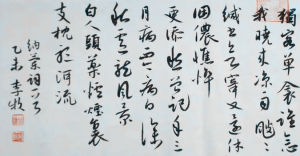 獨客單衾誰念
我曉來涼雨颼颼
緘書欲寄又還休
個儂憔悴
更添愁曾記年年三
月病而今病向深
秋盧龍風景
白人頭藥爐煙裏
支枕聽河流
納蘭詞一首
乙未李牧